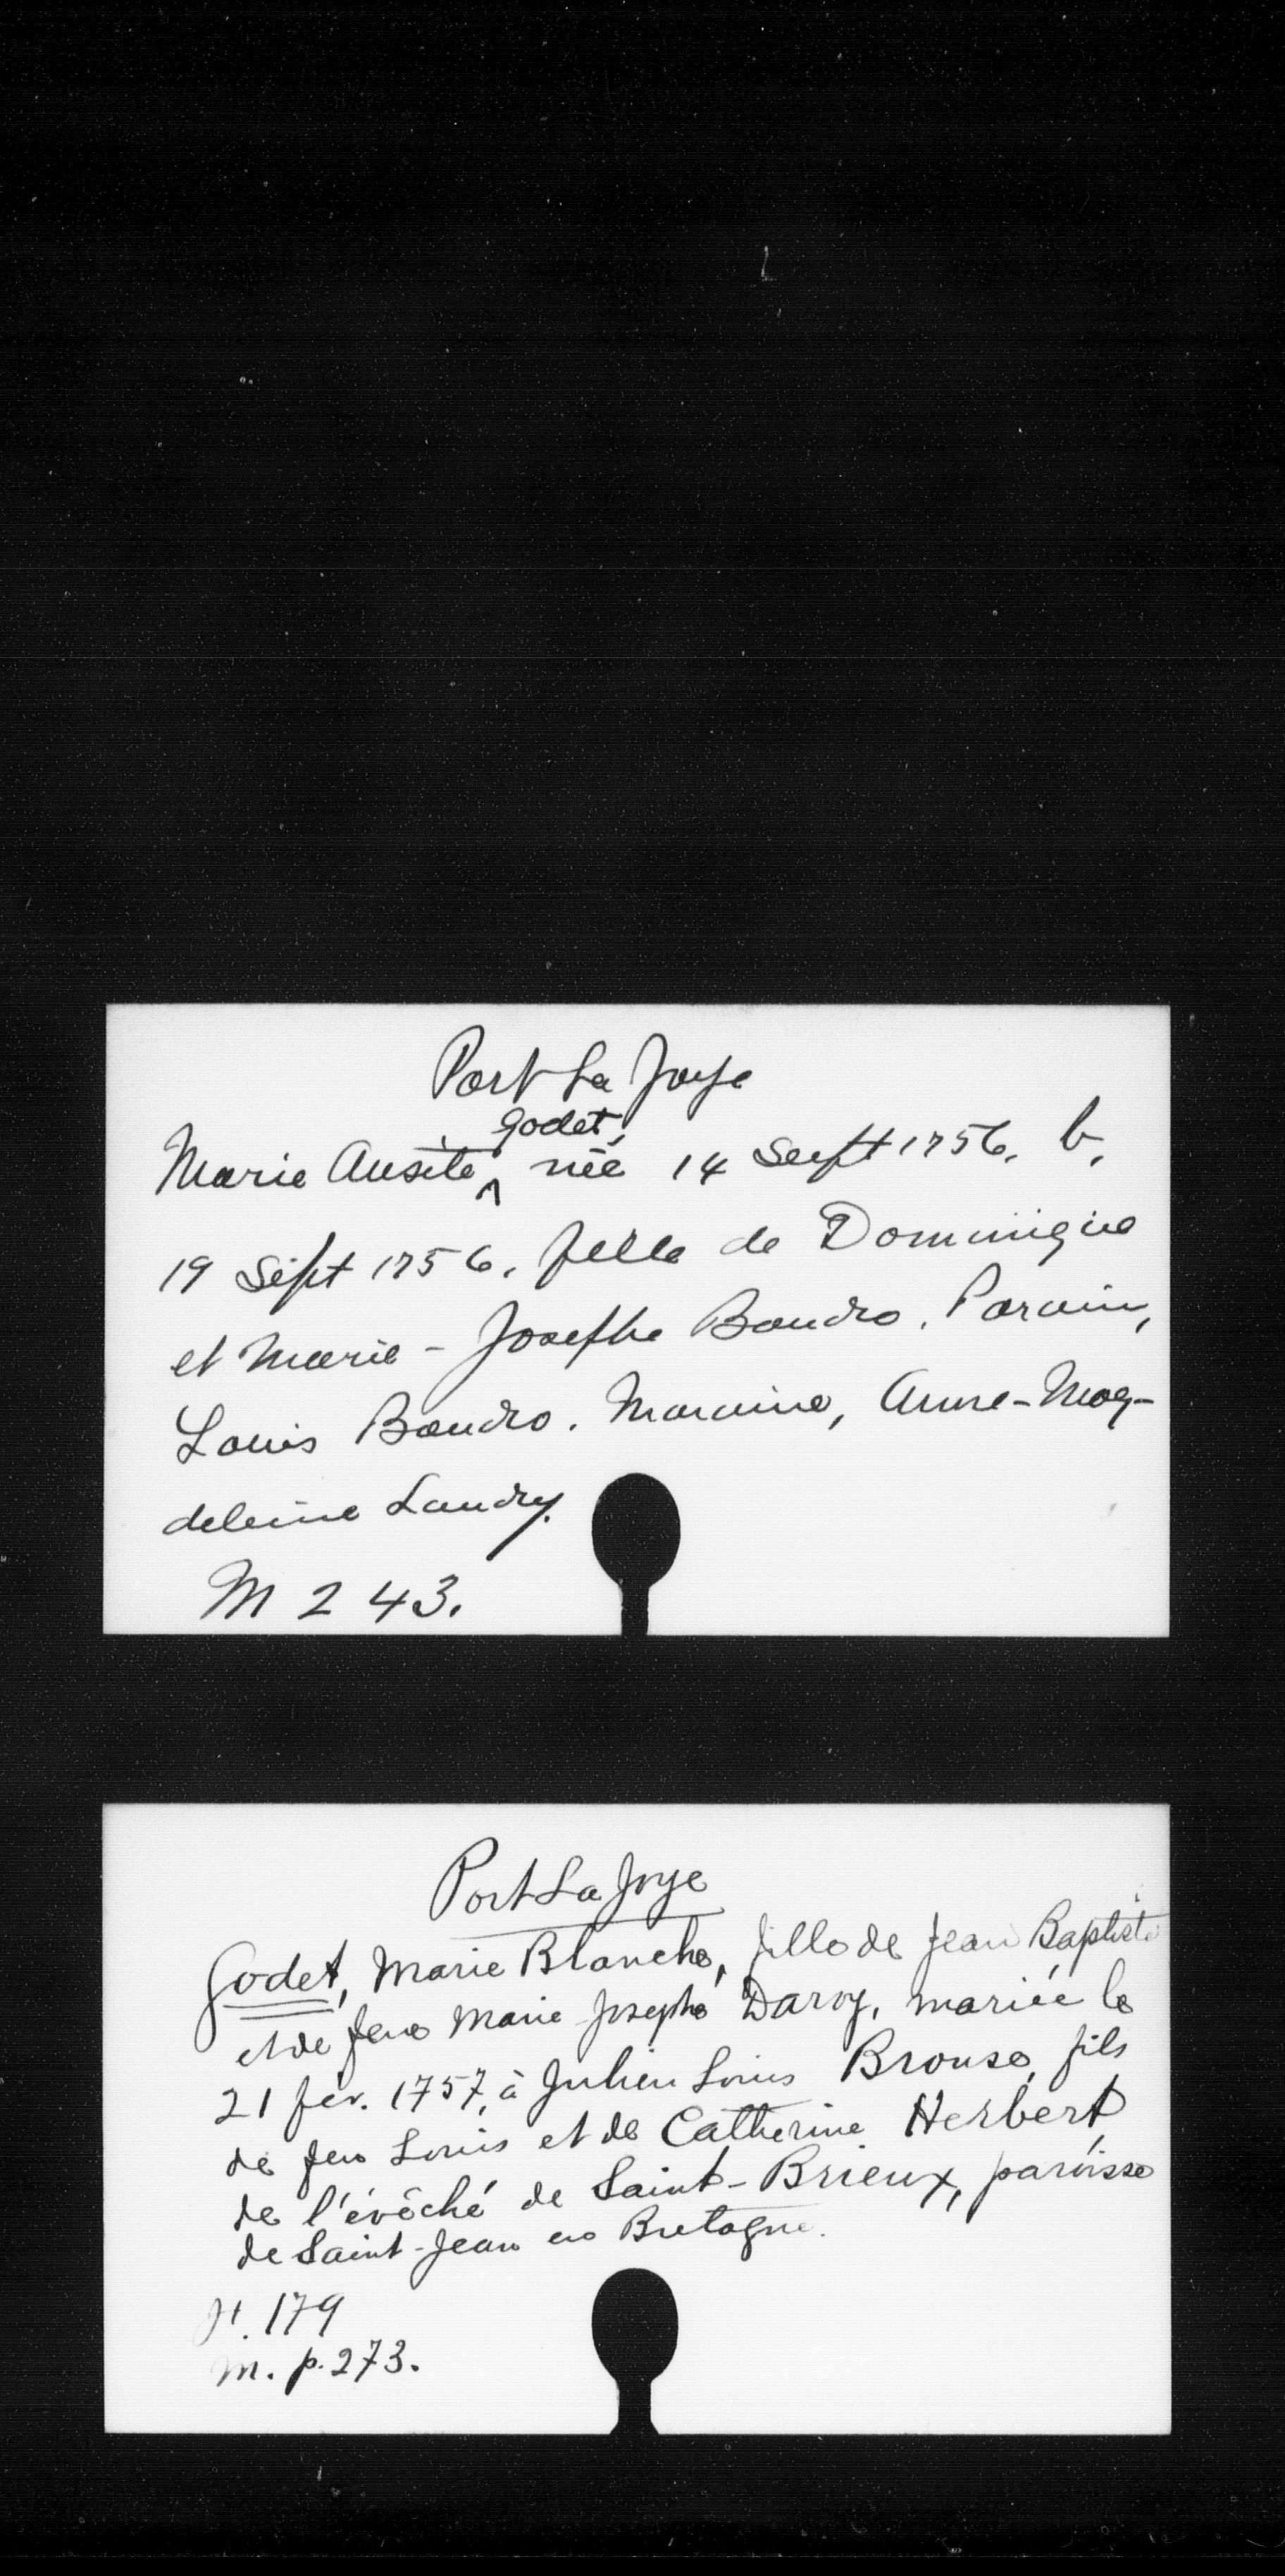 Port La Joye
Godet,
Marie Ausite ^ née 14 Sept 1756. b.
19 Sept 1756. fille de Dominique
et Marie-Josephe Baudro. Parain,
Louis Baudro. Maraine, Anne-Mag-
deleine Landry.
M 243.
Port La Joye
Godet, Marie Blanche, fille de Jean Baptiste
et de feue Marie Josephe Daroy, mariée le
21 fév. 1757, à Julien Louis Brouse, fils
de feu Louis et de Catherine Herbert,
de l'évêché de Saint-Brieux, paroisse
de Saint-Jean en Bretagne.
p. 179
m. p. 273.